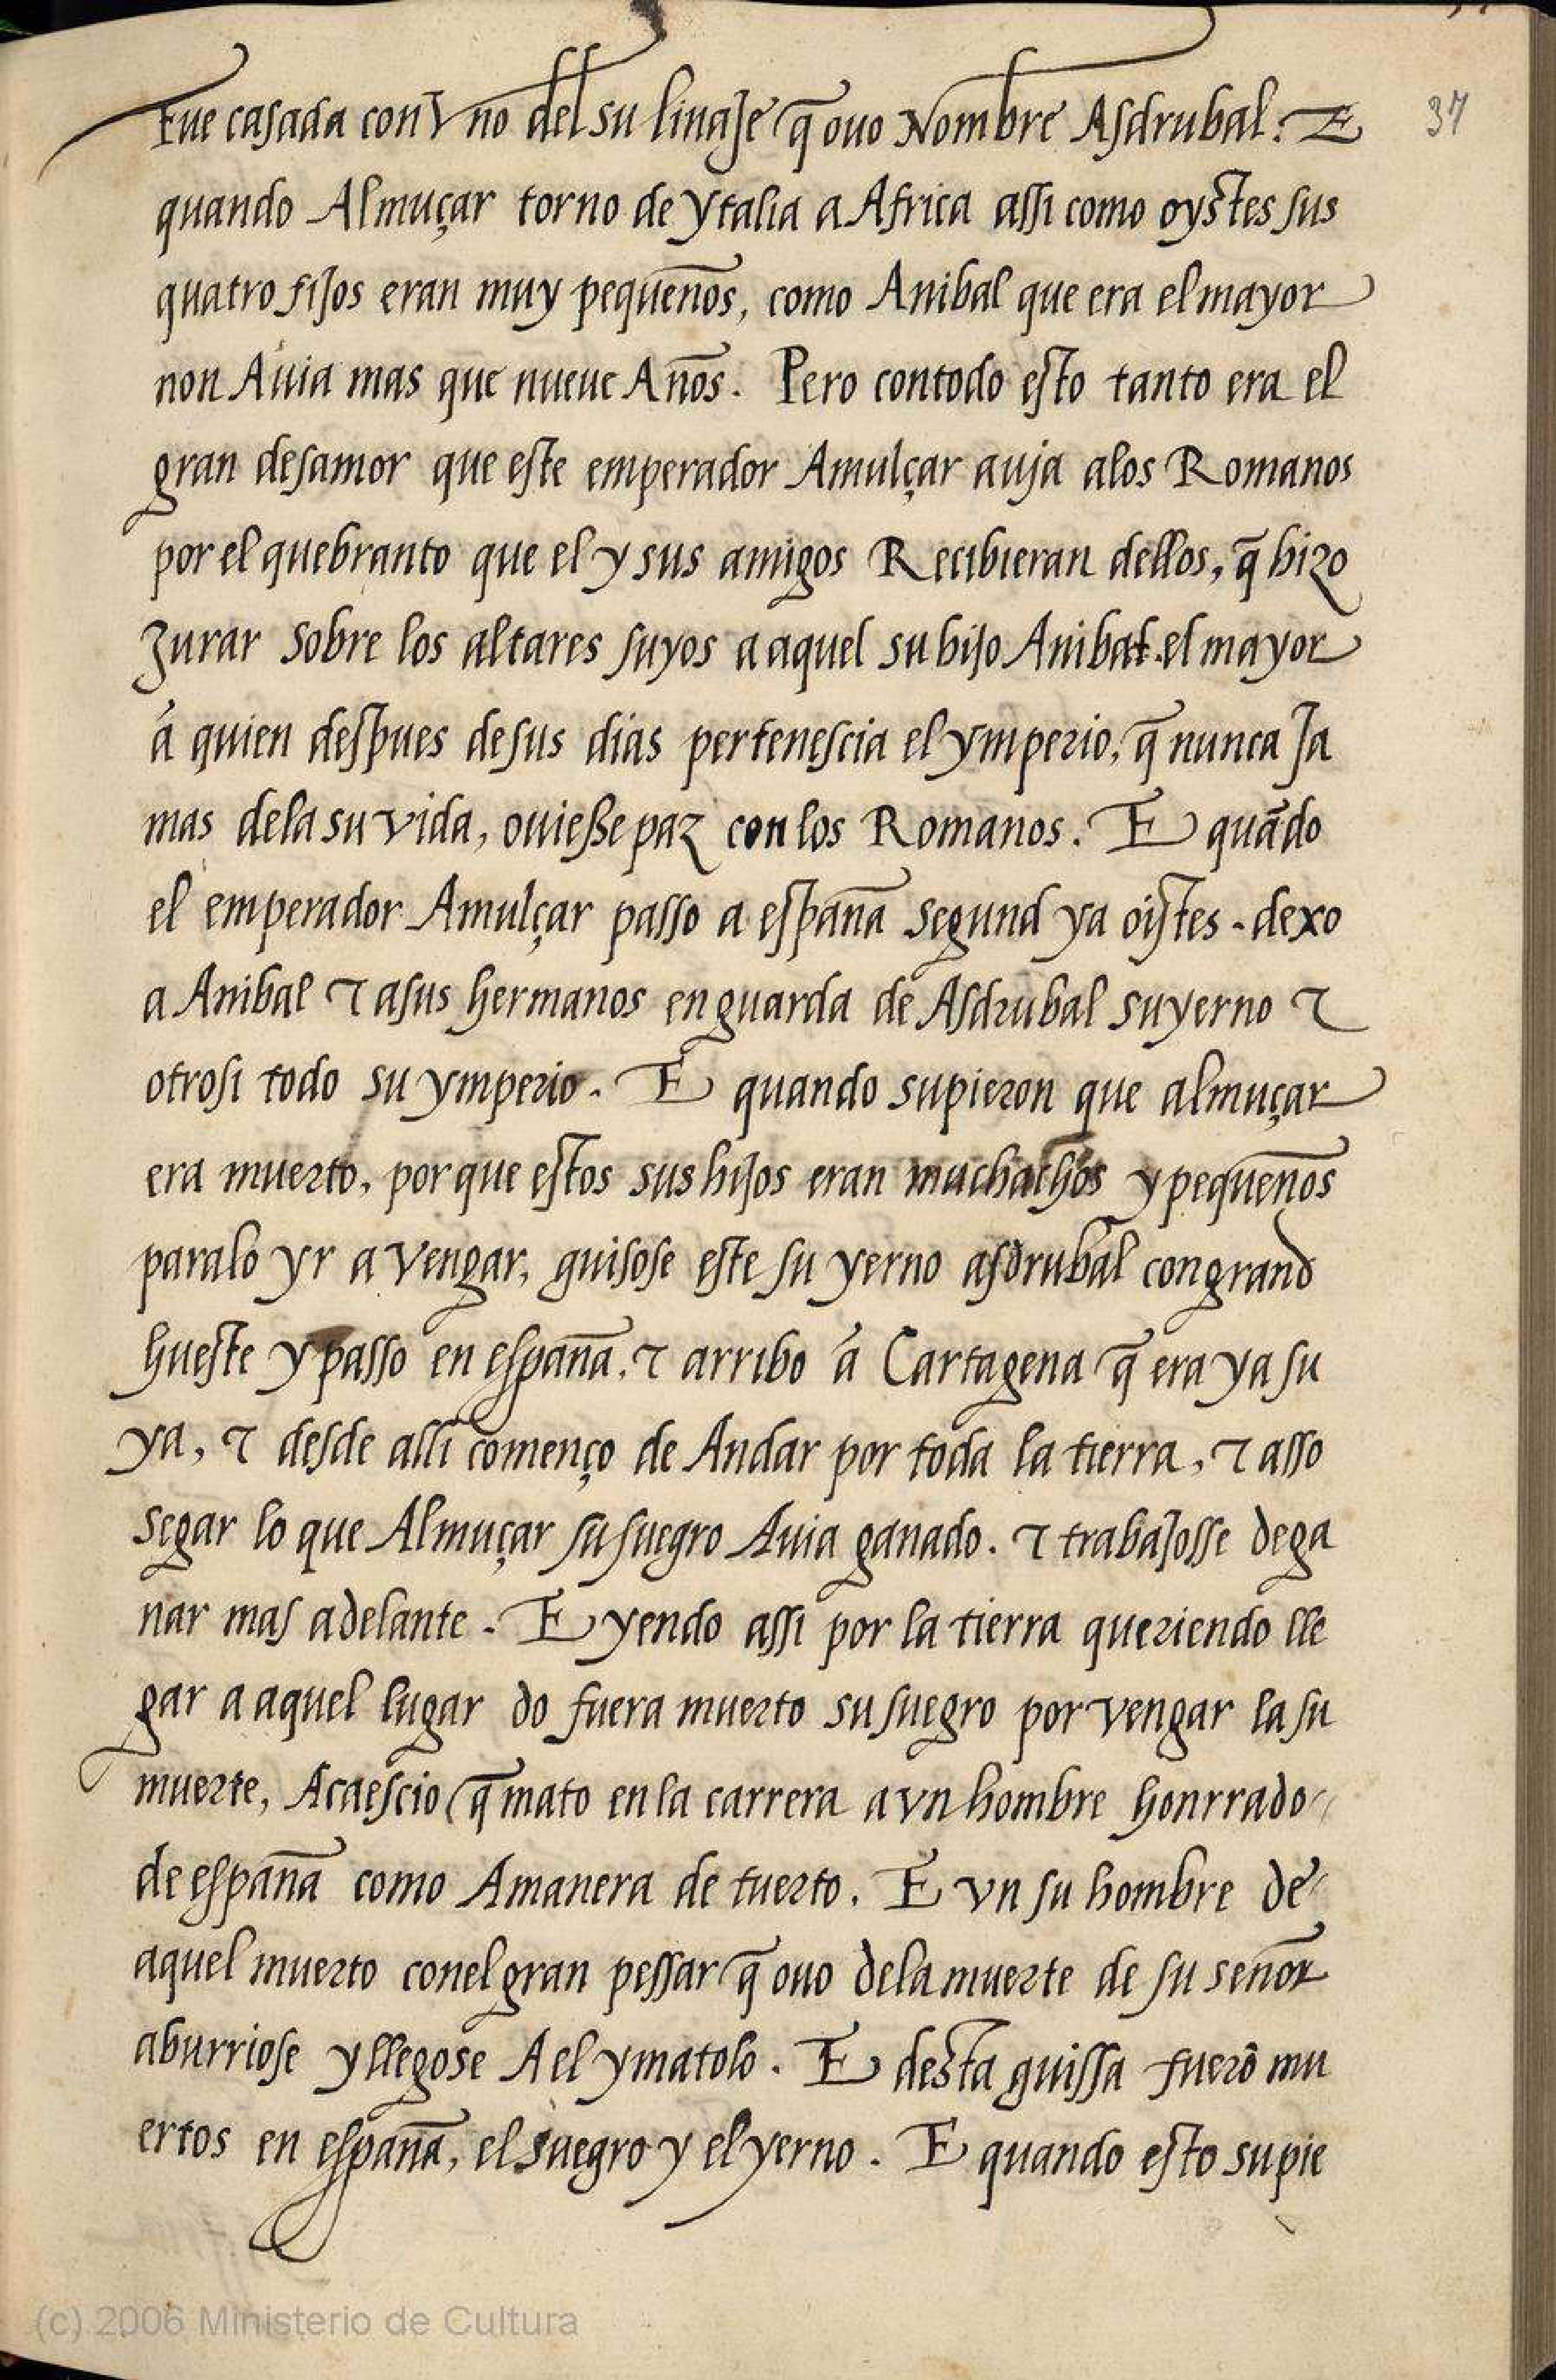 Fue casada con Vno del su linaje q̃ ouo Nombre Asdrubal. E
37
quando Almuçar torno de ytalia a Africa assi como oystes sus
quatro fijos eran muy pequeños, como Anibal que era el mayor
non Auia mas que nueue Años. Pero con todo esto tanto era el
gran desamor que este emperador Amulçar auja alos Romanos
por el quebranto que el y sus amigos Recibieran dellos, q̃ hizo
Jurar sobre los altares suyos a aquel su hijo Anibal el mayor
á quien despues de sus dias pertenescia el ymperio, q̃ nunca Ja
mas dela su vida, ouiesse paz con los Romanos. E quãdo
el emperador Amulçar passo a españa segund ya oistes. dexo
a Anibal ⁊ a sus hermanos en guarda de Asdrubal su yerno ⁊
otrosi todo su ymperio. E quando supieron que almuçar
era muerto, por que estos sus hijos eran muchachos y pequeños
para lo yr a vengar, guisose este su yerno asdrubal con grand
hueste y passo en españa. ⁊ arribo á Cartagena q̃ era ya su
ya, ⁊ desde alli començo de Andar por toda la tierra, ⁊ asso
segar lo que Almuçar su suegro Auia ganado. ⁊ trabajosse de ga
nar mas adelante. E yendo assi por la tierra queriendo lle
gar a aquel lugar do fuera muerto su suegro por vengar la su
muerte, Acaescio q̃ mato en la carrera a vn hombre honrrado
de españa como Amanera de tuerto. E vn su hombre de
aquel muerto con el gran pessar q̃ ouo dela muerte de su señor
aburriose y llegose A el y matolo. E desta guissa fuerõ mu
ertos en españa, el suegro y el yerno. E quando esto supie
(c) 2006 Ministerio de Cultura